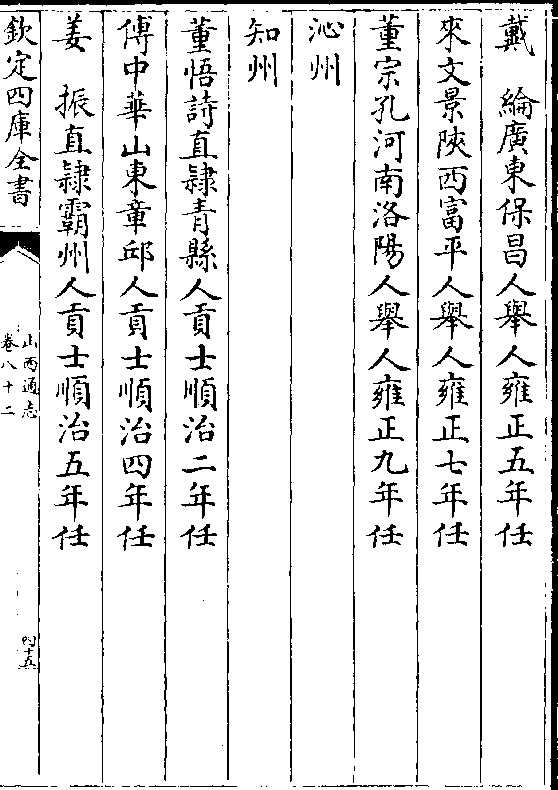 戴　綸廣東保昌人舉人雍正五年任
來文景陝西富平人舉人雍正七年任
董宗孔河南洛陽人舉人雍正九年任
沁州
知州
董悟詩直隸青縣人貢士順治二年任
傅中華山東章邱人貢士順治四年任
姜　振直隸霸州人貢士順治五年任
欽定四庫全書
山西通志
卷八十二